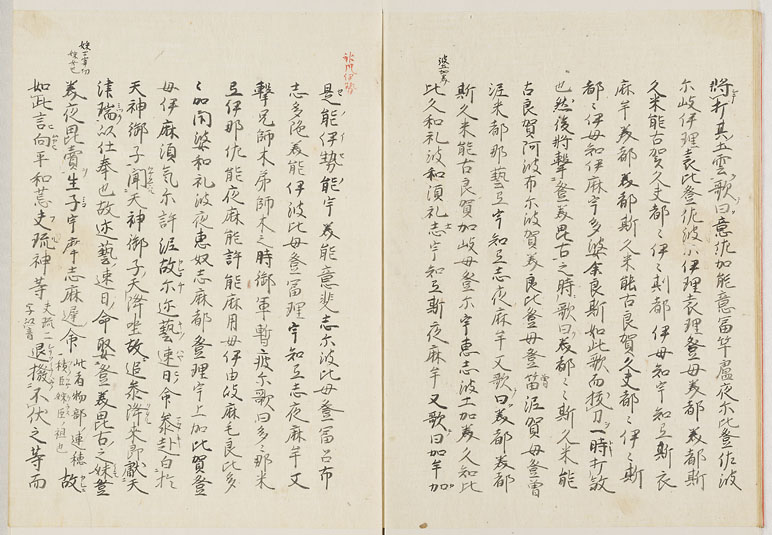 將打其土雲歌曰意佐加能意冨牟盧夜尓比登佐波
尓岐伊理袁比登佐波小伊理袁理登母美都美都斯
久米能古賀久夫都々伊々 都伊母知宇知弖斯
麻牟美都美都斯久米能古良賀久夫都々伊々斯
都々伊母知伊麻宇多婆余良斯如此歌而拔刀一時打敘
也然後將擊登美毘古之時歌曰美都々々斯久米能
古良賀阿波布尓波賀美良比登母登曾泥賀母登曾
泥米都那藝弖宇知弖志夜麻牟又歌曰美都美都
斯久米能古良賀加岐母登尓宇惠志波士加美久知比
比久和礼波和須礼志宇知弖斯夜麻牟又歌曰加牟加
是能伊勢能宇美能意斐志尓波比母登冨呂布
志多陁美能伊波比母登冨理宇知弖志夜麻牟又
擊兄師木弟師木之時御軍暫疲尓歌曰多々那米
弖伊那佐能夜麻能許能麻用母伊由岐麻毛良比多
々加閇婆和礼波夜惠奴志麻都登理宇上加比賀登
母伊麻須氣尓許泥故尓迩藝速日命參赴白於
天神御子聞天神御子天降坐故追參降來即獻天
津瑞以仕奉也故迩藝速日命娶登美毘古之妹登
美夜毘賣生子宇摩志麻遲命 此者物部連穗積臣婇臣之祖也 故
如此言向平和荒夫琉神等 夫琉二字以音 退撥不伏之等而